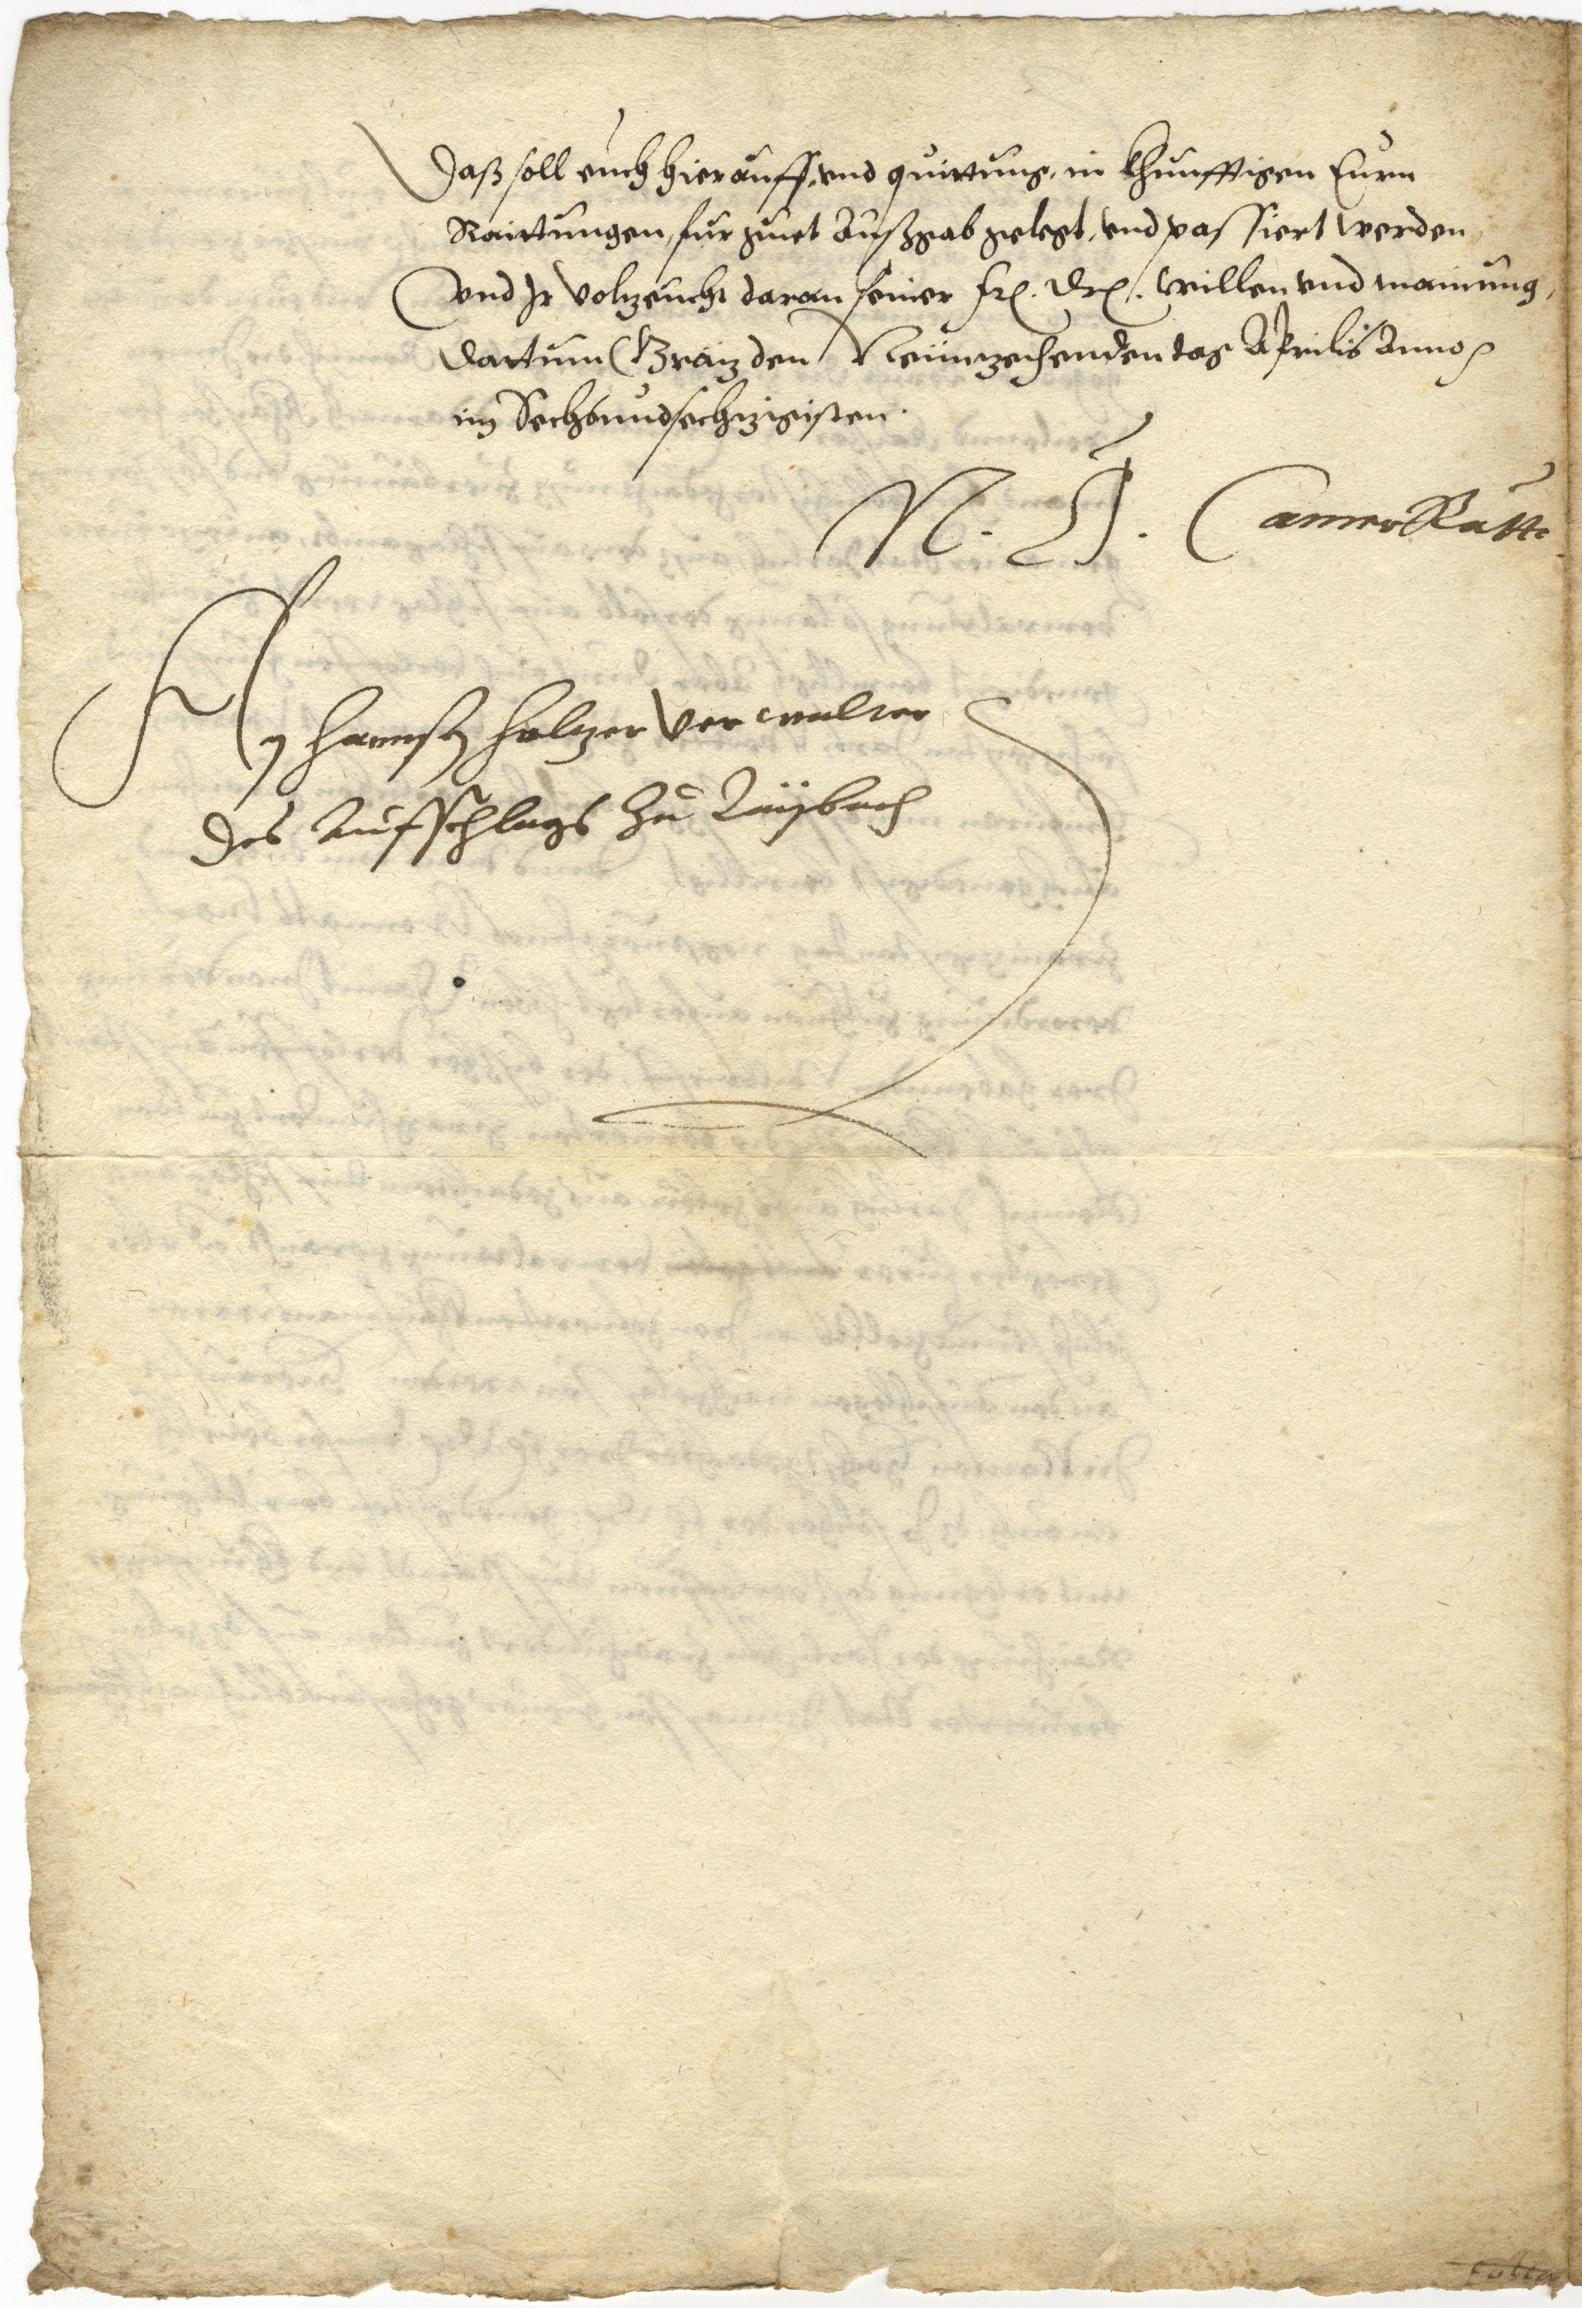 Daß soll euch hierauff, vnd quittung, in khunfftigen Eurn
Raittungen, fur guet Außgab gelegt, vnd passiert werden,
Vnd Ir volzeucht daran seiner fr. Dr. willen vnd mainung,
Dattum Gräz den Neünzechenden tag Aprilis Anno
im Sechsundsechzigisten.
N. Ö. Camer Rätte
An Hannß Holtzer Verwalter
des Aufschlags zu Laybach